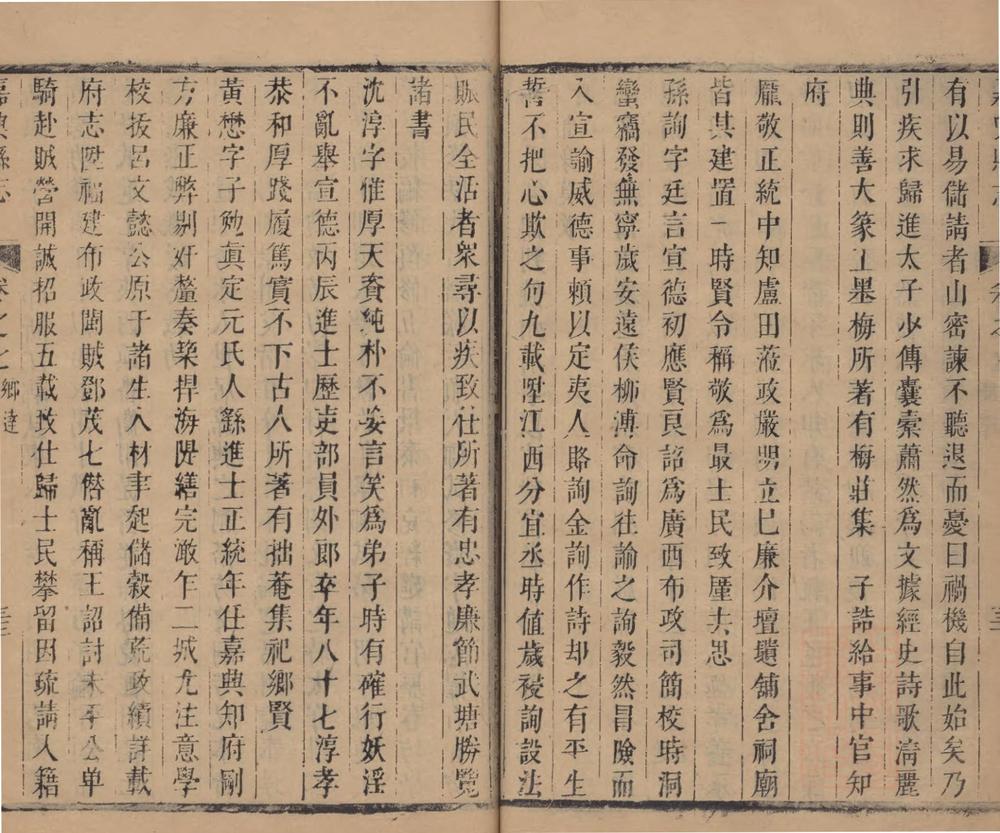 有以易儲請者山密諫不聽退而憂曰禍機自此始矣乃
引疾求歸進太子少傅囊槖蕭然爲文據經史詩歌淸麗
典則善大篆工墨梅所著有梅莊集 子誥給事中官知
府
龎敬正統中知盧田蒞政嚴明立巳廉介壇壝舖舍祠廟
皆其建置一時賢令稱敬爲最士民致
孫詢字廷言宣德初應賢良詔爲廣西布政司簡校時洞
蠻竊發無寧歲安遠侯柳溥命詢往諭之詢毅然冒險而
入宣諭威德事賴以定夷人賂詢金詢作詩却之有平生
誓不把心欺之句九載陞江西分宜丞時値歲祲詢設法
賑民全活者衆尋以疾致仕所著有忠孝廉節武塘勝覽
諸書
沈淳字惟厚天賚純朴不妄言笑爲弟子時有確行妖淫
不亂舉宣德丙辰進士歷吏部員外郎卒年八十七淳孝
恭和厚踐履篤實不下古人所著有拙菴集祀鄉賢
黃懋字子勉眞定元氏人繇進士正統年任嘉興知府剛
方廉正弊剔奸釐奏築捍海隄繕完澉乍二城尤注意學
校拔呂文懿公原于諸生人材事起儲穀備荒政績詳載
府志陞福建布政閩賊鄧茂七僭亂稱王詔討未平公单
騎赴賊營開誠招服五載攻仕歸士民攀留因疏請入籍
嘉興縣志 卷之七 鄉達 三